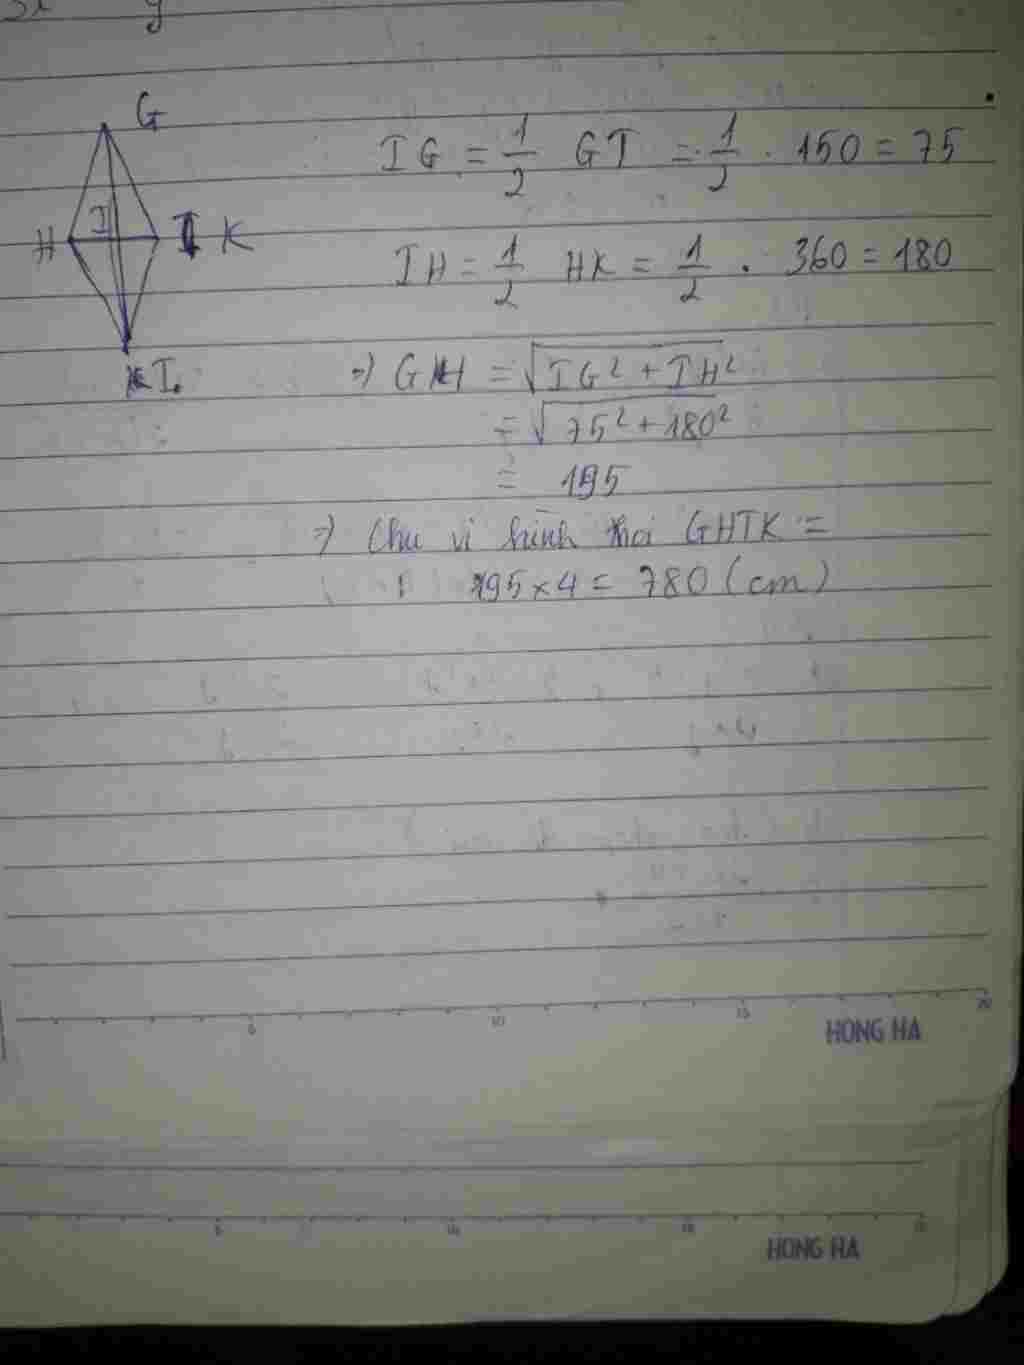 G
IG = 1/2 GT = 1/2 . 150 = 75
H I K
IH = 1/2 HK = 1/2 . 360 = 180
I.
=) GH = √IG² + IH²
= √75² + 180²
= 195
=) Chu vi hình thoi GHTK =
195 x 4 = 780 (cm)
5 10 15 20
HONG HA
HONG HA